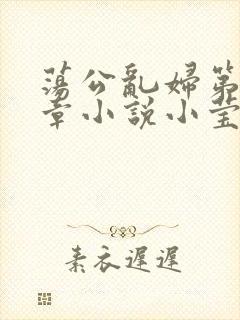 蕩公亂婦第
章小說小莹
素衣遲遲